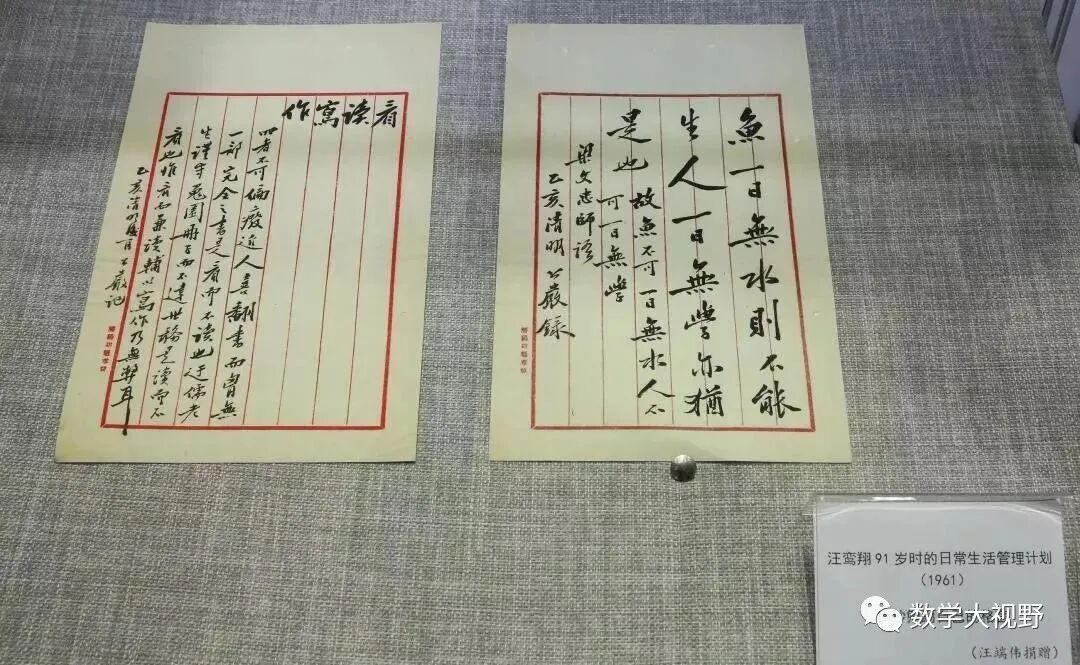 看读寫作
四者不可偏廢近人喜翻書而胷無
一部完全之書是看而不读也迂儒老
生謹守兎園册子而不達世務是读而不
看也惟看而兼读輔以寫作乃無弊耳
乙亥清明後一日公嚴记
魚一日無水則不能
生人一日無學亦猶
是也故魚不可一日無水人不
可一日無學
梁文忠師语
乙亥清明公嚴録
汪鸾翔91岁时的日常生活管理计划
（1961）
数学大视野
（汪端伟捐赠）